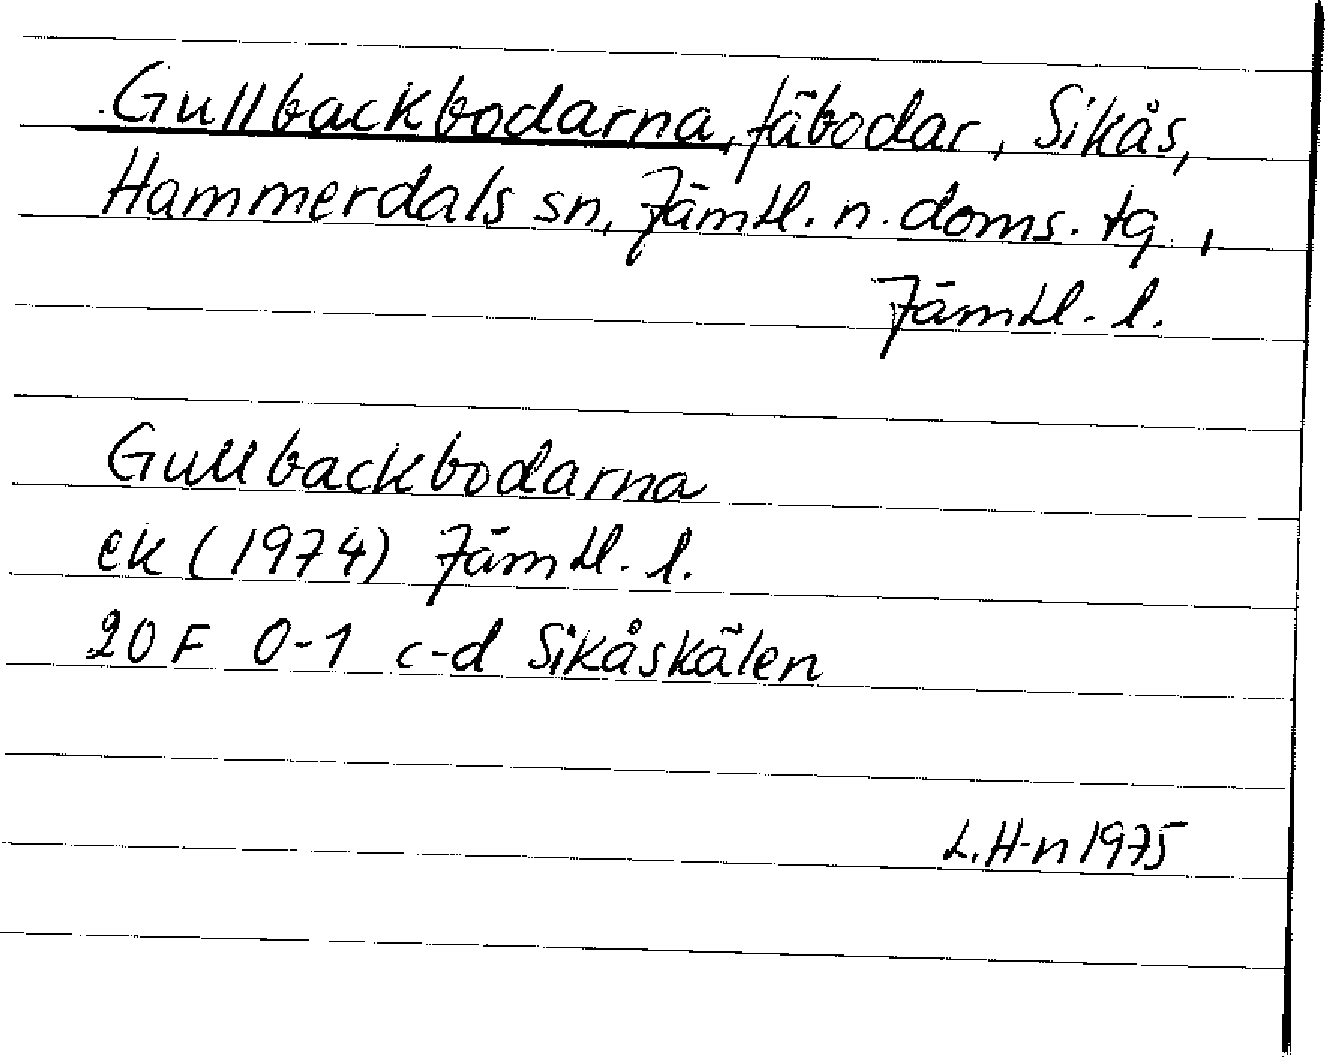 Gullbackbodarna, fäbodar, Sikås,
Hammerdals sn, Jämtl. n. doms. tg.,
Jämtl. l.
Gullbackbodarna
ek (1974) Jämtl. l.
20 F 0-1 c-d Sikåskälen
L. H-n 1975